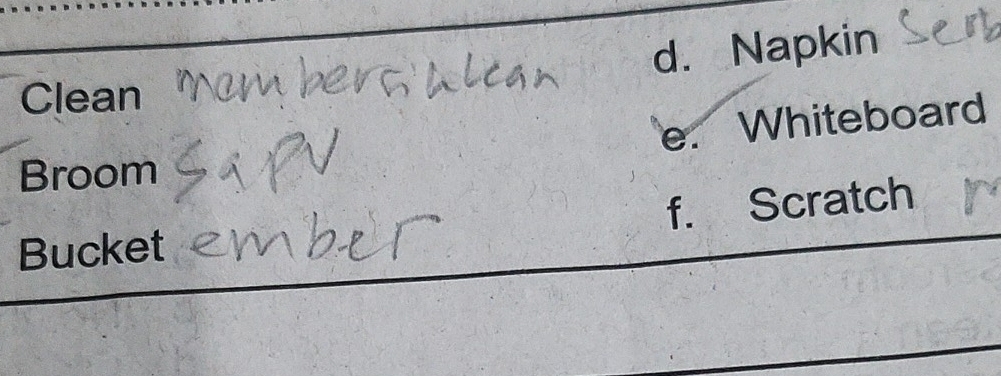 Clean membersihkan
Broom sapu
Bucket ember
d. Napkin Serb
e. Whiteboard
f. Scratch